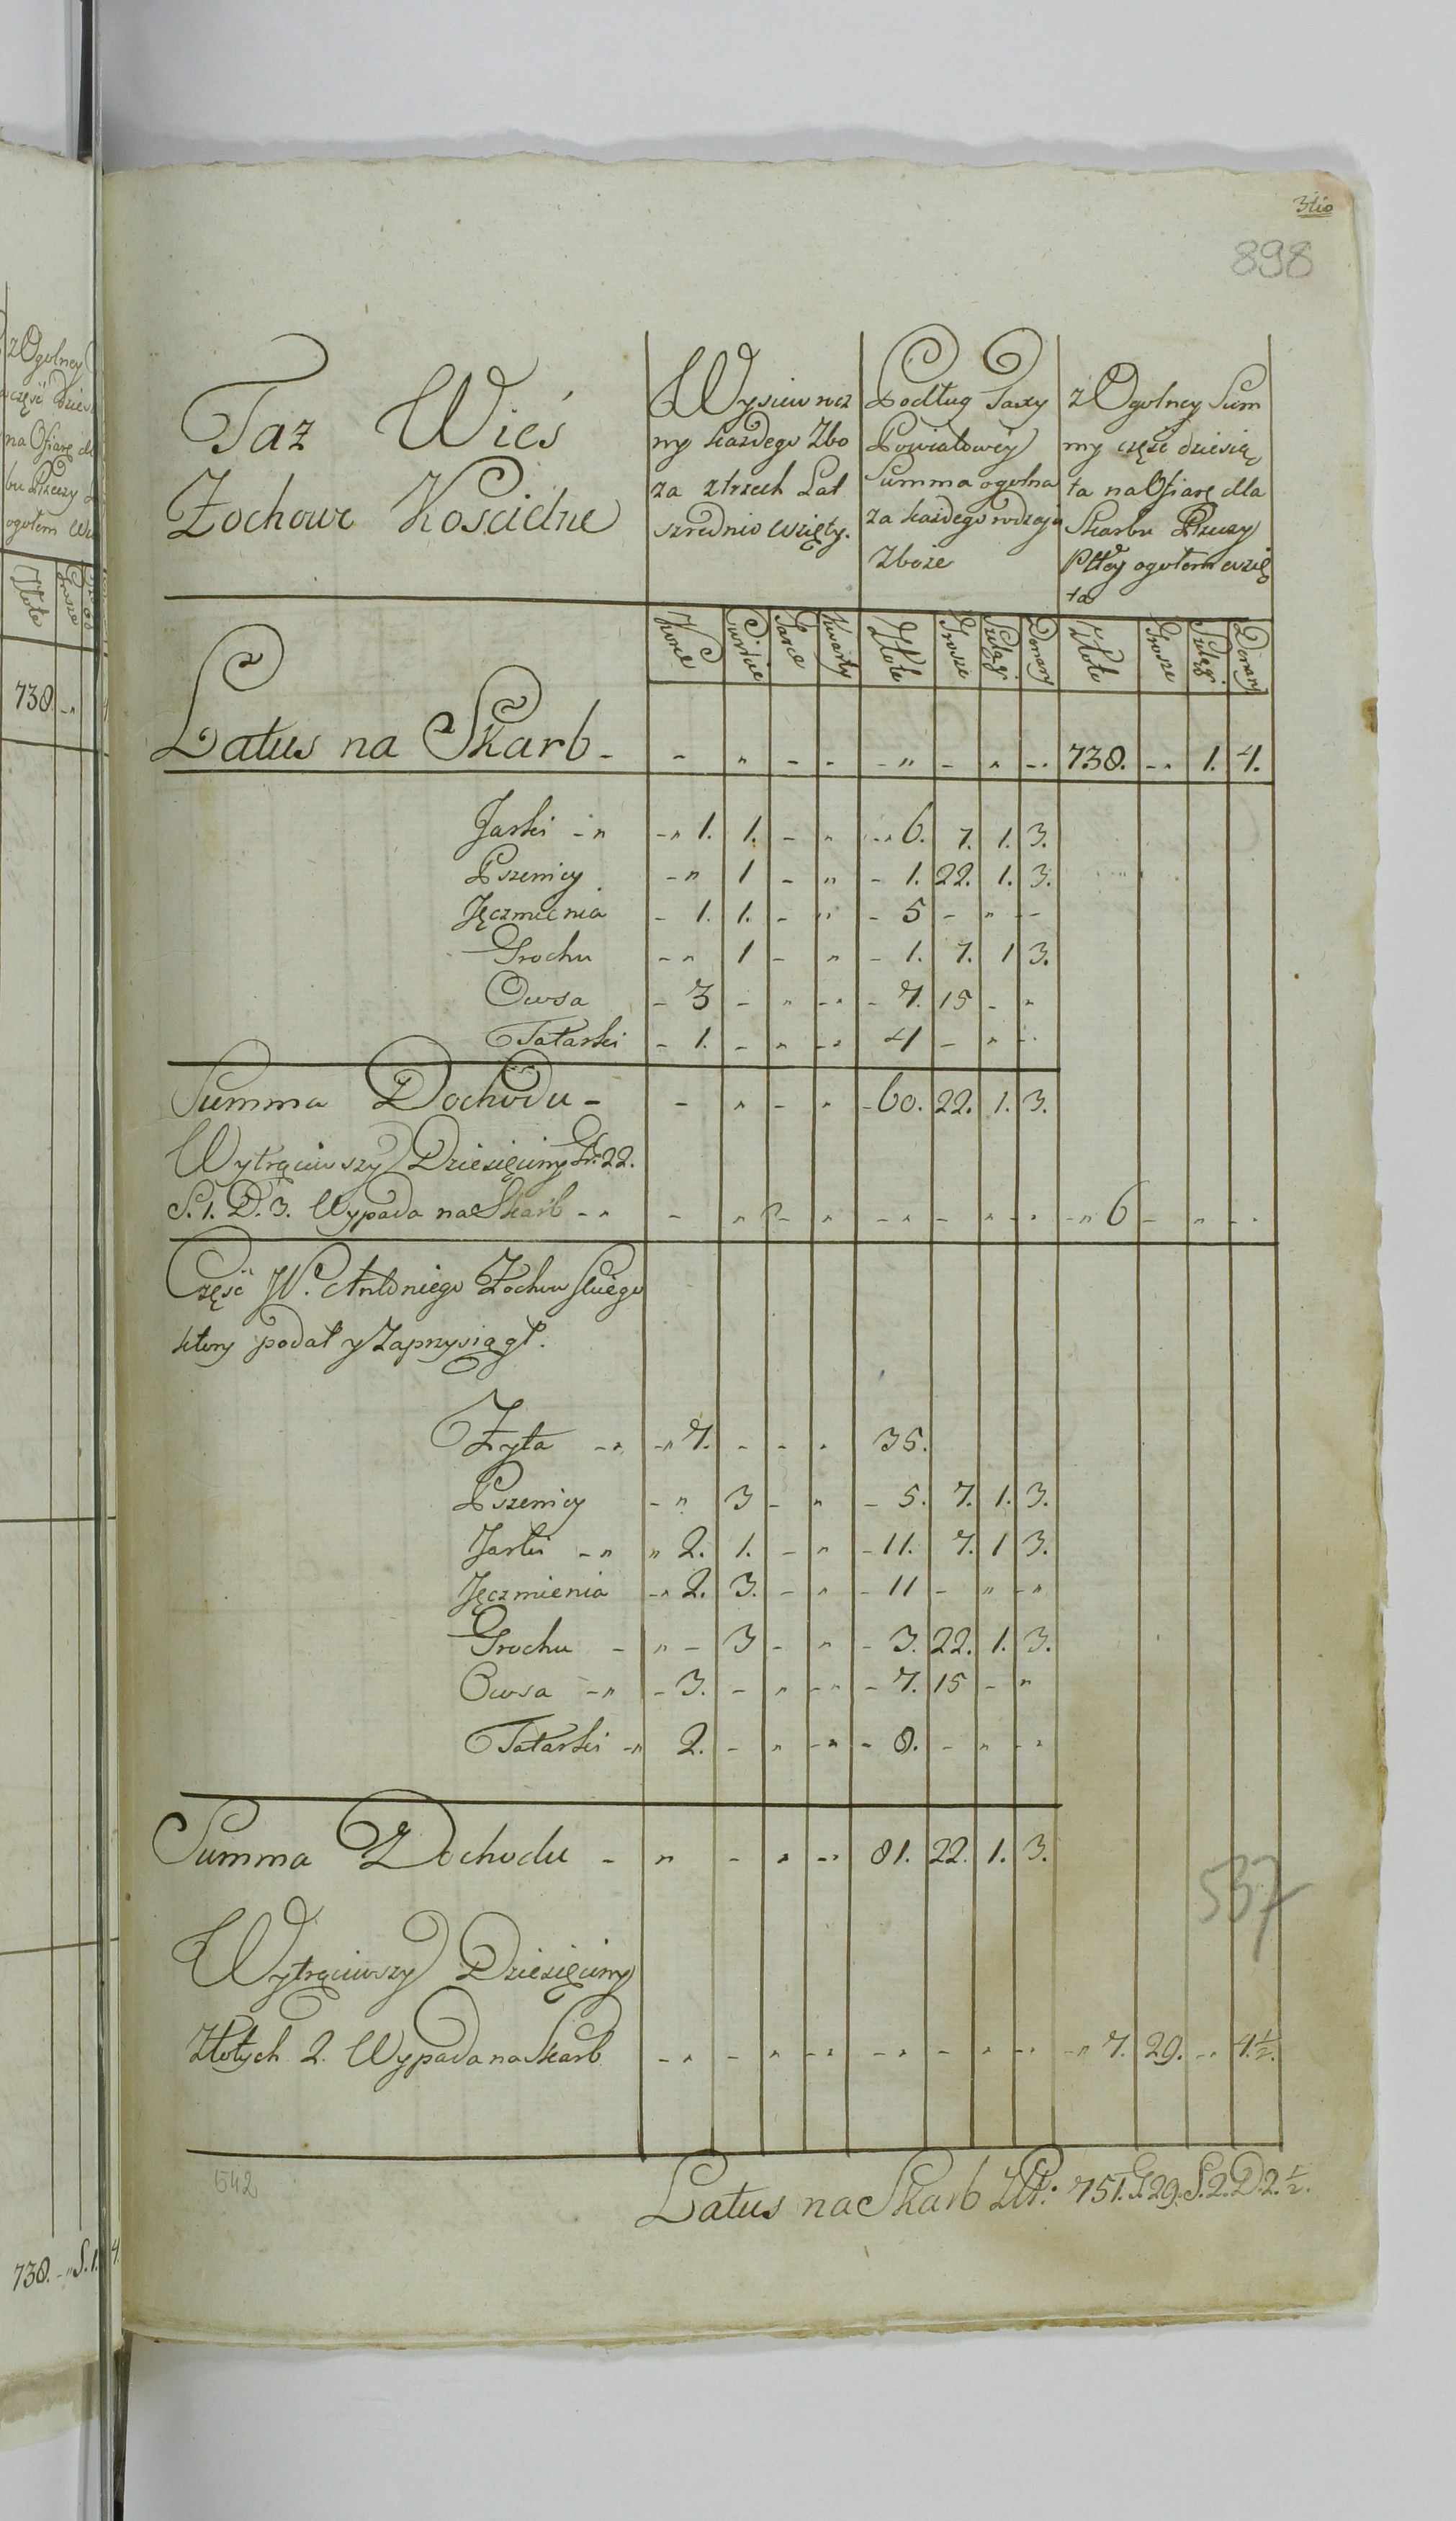 3tio
898
Taż Wieś
Żochowe Kościelne
Wysiew rocz
ny każdego Zbo
ża z trzech Lat
szrednio wzięty.
Podług Taxy
Powiatowey
Summa ogolna
za każdego rodzaju
Zboże
z Ogolney Sum
my część dziesią
ta na Ofiarę dla
Skarbu Rzeczy
Pltey ogołem wzię
ta
Korce Ćwierci Garce Kwarty Złote Grosze Szelągi Denary Złote Grosze Szelągi Denary
Latus na Skarb - - „ - - - „ - „ - - 738. - „ 1. 4.
Jarki - „ - „ 1. 1. - „ - „ 6. 7. 1. 3.
Pszenicy - „ 1 - „ - 1. 22. 1. 3.
Jęczmienia - 1. 1. - „ - 5 - „ - -
Grochu - „ 1 - „ - 1. 7. 1 3.
Owsa - 3 - „ - „ - 7. 15 - „
Tatarki - 1. - „ - „ 4 - „ -
Summa Dochodu - - „ - „ - 60. 22. 1. 3.
Wytrąciwszy Dziesięciny Gr: 22.
S. 1. D. 3. Wypada na Skarb - „ - „ - „ - „ - „ - „ - „ 6 - „ - „
Część W. Antoniego Żochowskiego
ktory podał y zaprzysiągł.
Żyta - „ - „ 7. - - „ 35.
Pszenicy - „ 3 - „ - 5. 7. 1. 3.
Jarki - „ „ 2. 1. - „ - 11. 7. 1 3.
Jęczmienia - „ 2. 3. - „ - 11 - „ - „
Grochu - „ - 3 - „ - 3. 22. 1. 3.
Owsa - „ - 3. - „ - „ - 7. 15 - „
Tatarki - „ 2. - „ - „ - 8. - „ - „
Summa Dochodu - „ - „ - „ 81. 22. 1. 3.
Wytrąciwszy Dziesięciny
Złotych 2. Wypada na Skarb - „ - „ - „ - „ - „ - „ - „ 7. 29. - „ 4 ½.
537
542
Latus na Skarb Złł: 751. G. 29. S. 2. D. 2. ½.
z Ogolney
część dzies
na Ofiarę dl
bu Rzeczy
ogołem
Złote
Grosze
738. - „
738. - „ S. 1. 4.